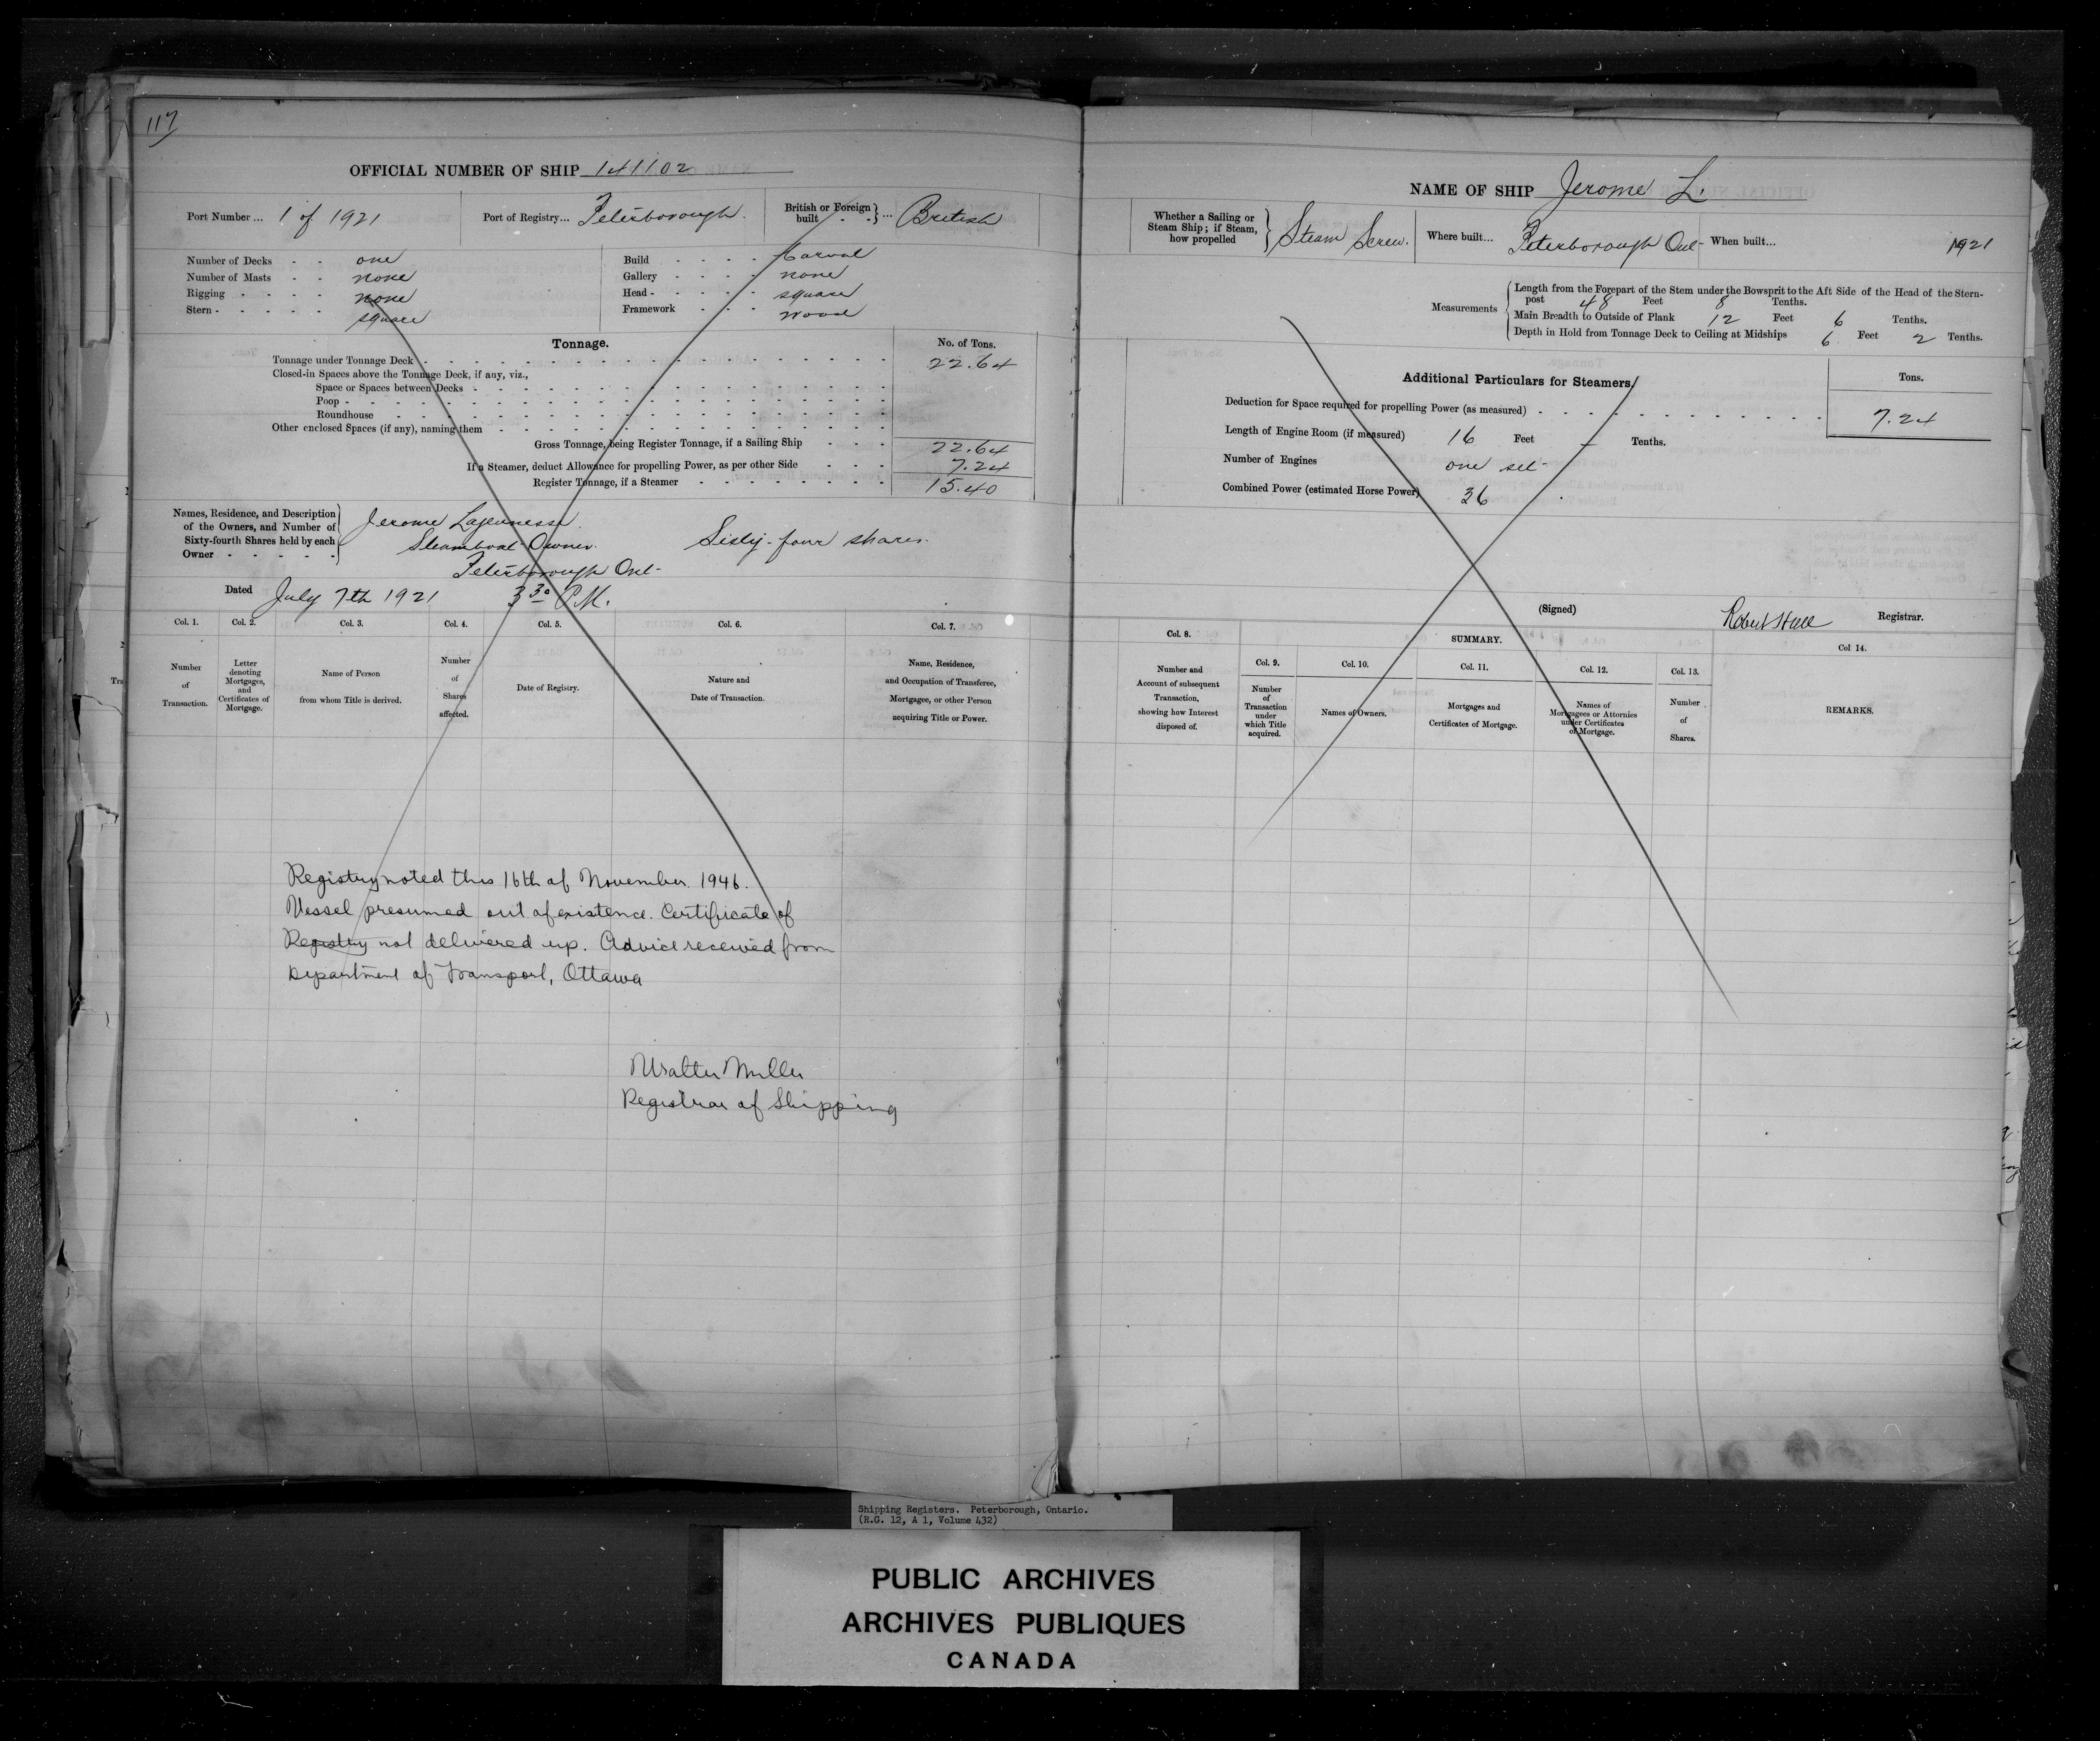 117
OFFICIAL NUMBER OF SHIP 141102
Port Number ... 1 of 1921 Port of Registry... Peterborough. British or Foreign built - - } ... British
Number of Decks - - one
Number of Masts - - none
Rigging - - - - none
Stern - - - - - square
Build - - - - Carval
Gallery - - - - none
Head - - - - - square
Framework - - - wood
Tonnage. No. of Tons.
Tonnage under Tonnage Deck - 22.64
Closed-in Spaces above the Tonnage Deck, if any, viz.,
Space or Spaces between Decks -
Poop -
Roundhouse -
Other enclosed Spaces (if any), naming them -
Gross Tonnage, being Register Tonnage, if a Sailing Ship - - - 22.64
If a Steamer, deduct Allowance for propelling Power, as per other Side - - - 7.24
Register Tonnage, if a Steamer - 15.40
Names, Residence, and Description
of the Owners, and Number of
Sixty-fourth Shares held by each
Owner - - - - -
Jerome Lajeunesse.
Steamboat Owner. Sixty-four shares.
Peterborough Ont-
Dated July 7th 1921 3 30 P.M.
Col. 1. Col. 2. Col. 3. Col. 4. Col. 5. Col. 6. Col. 7.
Number of Transaction.
Letter denoting Mortgages, and Certificates of Mortgage.
Name of Person from whom Title is derived.
Number of Shares affected.
Date of Registry.
Nature and Date of Transaction.
Name, Residence, and Occupation of Transferee, Mortgagee, or other Person acquiring Title or Power.
Registry noted this 16th of November. 1946.
Vessel presumed out of existence. Certificate of
Registry not delivered up. Advice received from
Department of Transport, Ottawa
Walter Miller
Registrar of Shipping
NAME OF SHIP Jerome L.
Whether a Sailing or Steam Ship; if Steam, how propelled } Steam Screw. Where built... Peterborough Ont- When built... 1921
Measurements
Length from the Forepart of the Stem under the Bowsprit to the Aft Side of the Head of the Stern-
post 48 Feet 8 Tenths.
Main Breadth to Outside of Plank 12 Feet 6 Tenths.
Depth in Hold from Tonnage Deck to Ceiling at Midships 6 Feet 2 Tenths.
Additional Particulars for Steamers Tons.
Deduction for Space required for propelling Power (as measured) - 7.24
Length of Engine Room (if measured) 16 Feet — Tenths.
Number of Engines one set-
Combined Power (estimated Horse Power) 36
(Signed) Robert Hall Registrar.
Col. 8. SUMMARY. Col 14.
Col. 9. Col. 10. Col. 11. Col. 12. Col. 13.
Number and Account of subsequent Transaction, showing how Interest disposed of.
Number of Transaction under which Title acquired.
Names of Owners.
Mortgages and Certificates of Mortgage.
Names of Mortgagees or Attornies under Certificates of Mortgage.
Number of Shares.
REMARKS.
Shipping Registers. Peterborough, Ontario.
(R.G. 12, A 1, Volume 432)
PUBLIC ARCHIVES
ARCHIVES PUBLIQUES
CANADA